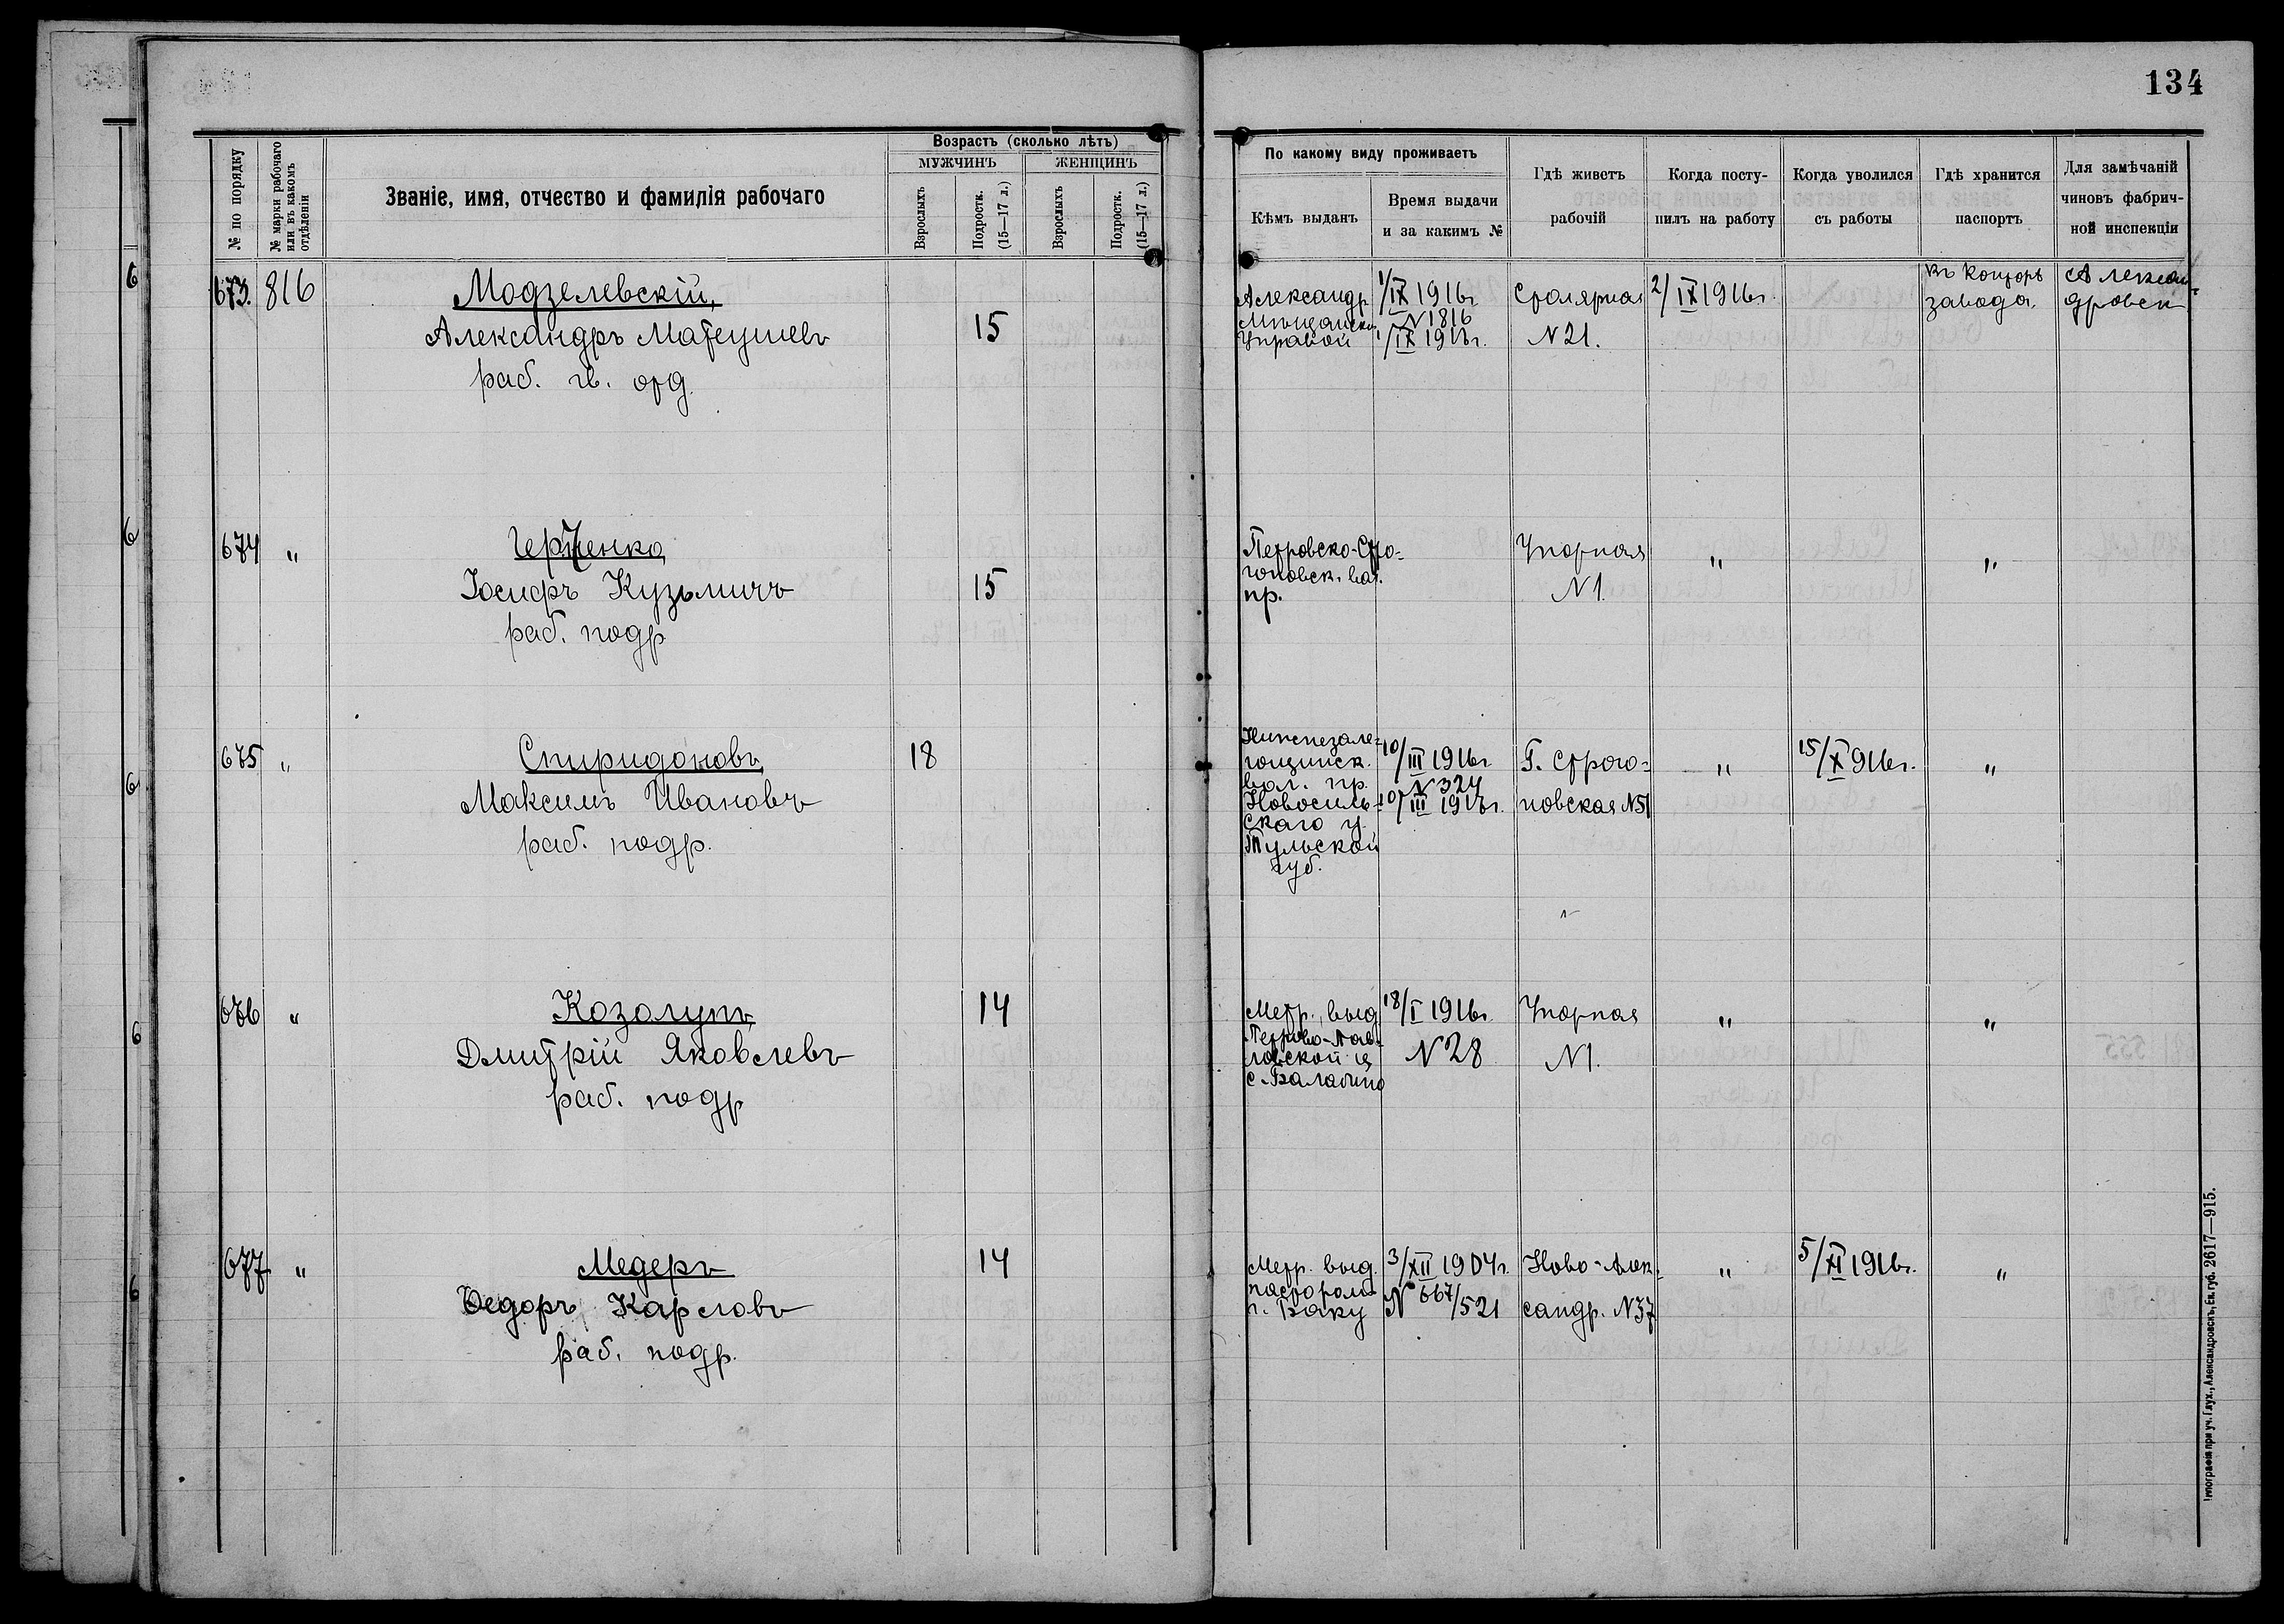 134
№ по порядку
№ марки рабочаго или въ какомъ отдѣленіи
Званіе, имя, отчество и фамилія рабочаго
Возрастъ (сколько лѣтъ)
МУЖЧИНЪ
ЖЕНЩИНЪ
Взрослыхъ
Подростк. (15—17 л.)
Взрослыхъ
Подростк. (15—17 л.)
По какому виду проживаетъ
Кѣмъ выданъ
Время выдачи
и за какимъ №
Гдѣ живетъ
рабочій
Когда посту-
пилъ на работу
Когда уволился
съ работы
Гдѣ хранится
паспортъ
Для замѣчаній
чиновъ фабрич-
ной инспекціи
673. 816
Модзелевскій,
Александръ Матеушевъ
раб. гл. отд.
15
Александр.
Мѣщанск.
Управой
1/IX 1916г.
N 1816
1/IX 1917г.
Столярная
N 21.
2/IX 1916г.
въ конторѣ
завода.
Алексан-
дровск
674 "
Іосифъ Кузьмичъ
раб. подр
15
Петровско-Сто-
гоновск. вол.
пр.
Упорная
N 1.
"
"
675 "
Спиридоновъ,
Максимъ Ивановъ
раб. подр.
18
гощинск.
вол. пр.
Новосиль-
скаго у.
Тульской
губ.
10/III 1916г.
N 324
10/III 1917г.
Г. Строго-
новская N 51
"
15/X 916г.
"
676 "
Козолупъ,
Дмитрій Яковлевъ
раб. подр
14
Метр., выд.
Петрово-Пав-
ловской ц.
с. Балабино
18/I 1916г.
N 28
Упорная
N 1.
"
"
677 "
Медеръ
Ѳедоръ Карловъ
раб. подр.
14
Метр. выд.
пасторомъ
г. Баку
3/XII 1904г.
N 667/521
Ново-Алек-
сандр. N 37
"
5/XI 1916г.
"
Типографія при уч. Глух., Александровскъ, Ек. губ. 2617—915.